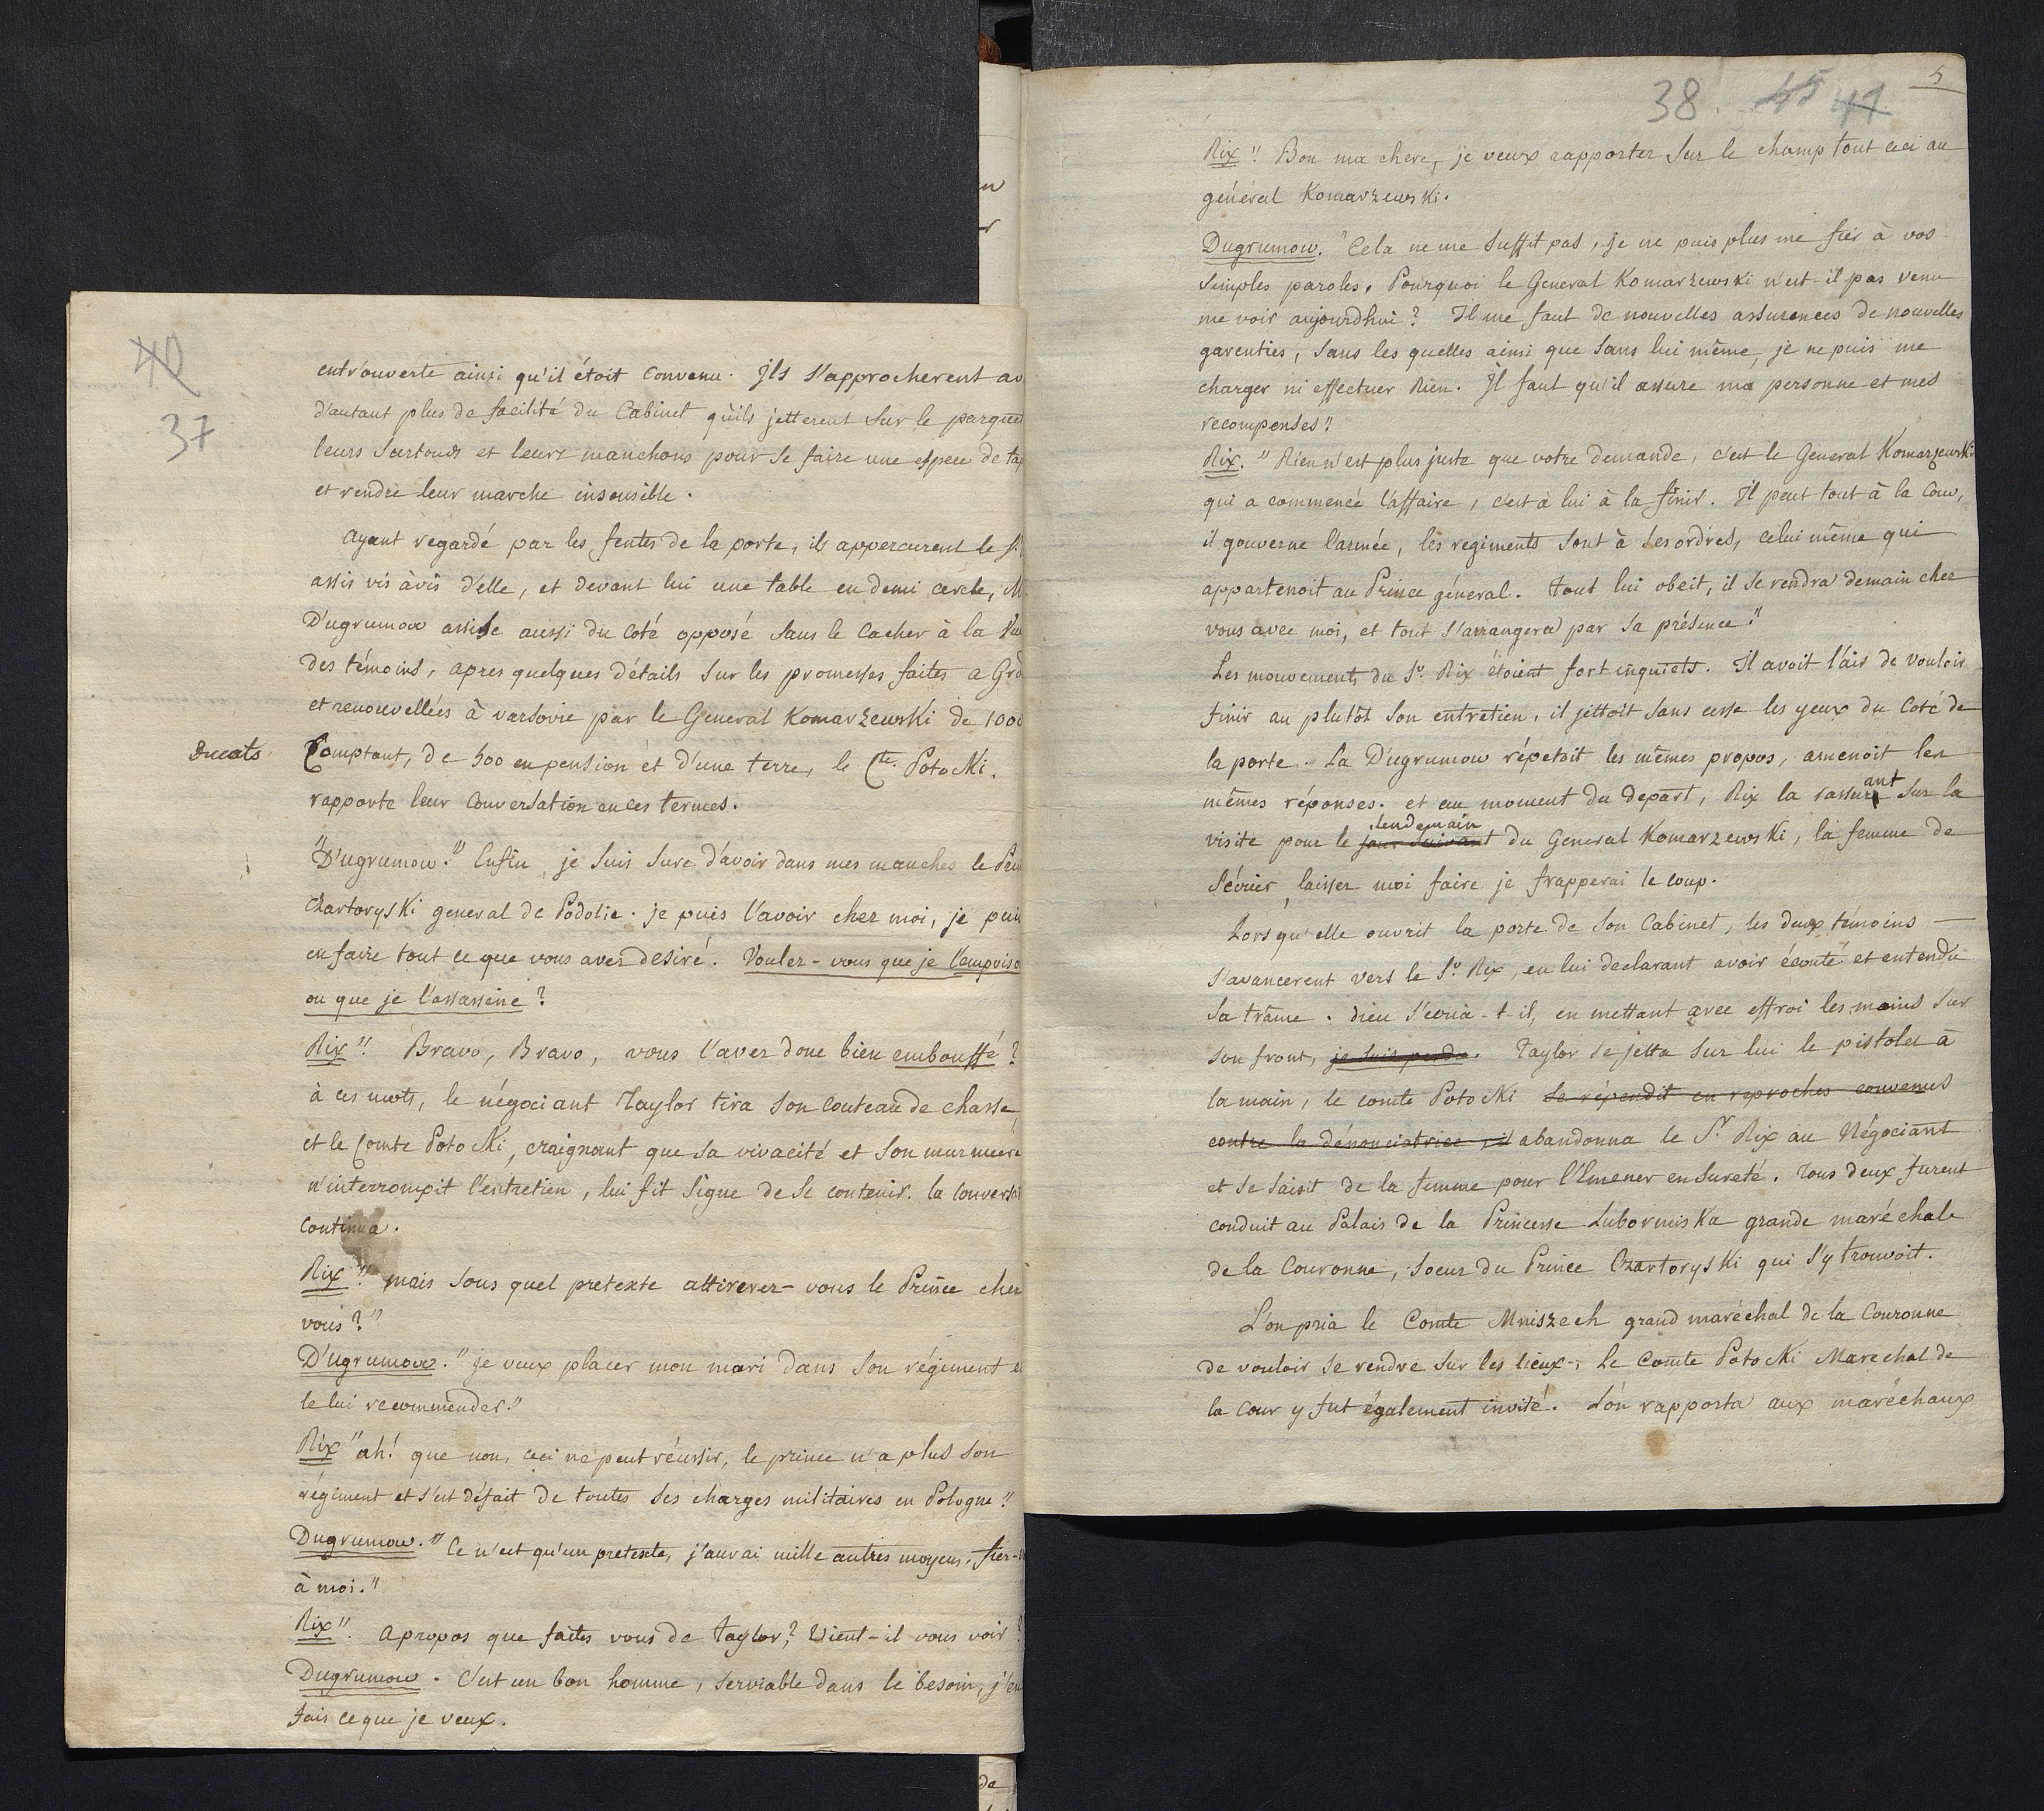 40
37
entr'ouverte ainsi qu'il étoit convenu. Ils s'approcherent av
d'autant plus de facilité du Cabinet qu'ils jetterent sur le parquet
leurs surtouts et leurs manchons pour se faire une espece de tap
et rendre leur marche insensible.
Ayant regardé par les fentes de la porte, ils apperçurent le Sr
assis vis àvis d'elle, et devant lui une table en demi cercle, M
D'ugrumow assise aussi du coté opposé sans le cacher à la vue
des témoins, apres quelques détails sur les promesses faites a Gro
et renouvellées à varsovie par le General Komarzewski de 1000
Ducats Comptant, de 500 en pension et d'une terre, le Cte. Potocki,
rapporte leur Conversation en ces termes.
"D'ugrumow." Enfin je suis sure d'avoir dans mes manches le Prin
Czartoryski general de Podolie. je puis l'avoir chez moi, je puis
en faire tout ce que vous avez desiré. Voulez-vous que je l'empoiso
ou que je l'assassine?
Rix". Bravo, Bravo, vous l'avez donc bien embouffé?
à ces mots, le négociant Taylor tira son couteau de chasse,
et le Comte Potocki, craignant que sa vivacité et son murmure
n'interrompit l'entretien, lui fit signe de se contenir. la conversat
continua.
Rix". mais sous quel pretexte attirerez-vous le Prince chez
vous?"
D'ugrumow." je veux placer mon mari dans son régiment e
le lui recommender."
Rix "ah! que non, ceci ne peut réussir, le prince n'a plus son
régiment et s'est défait de toutes ses charges militaires en Pologne".
Dugrumow." Ce n'est qu'un pretexte, j'aurai mille autres moyens, fiez-v
à moi."
Rix". Apropos que faites vous de Taylor? Vient-il vous voir?
Dugrumow. C'est un bon homme, serviable dans le besoin, j'en
fais ce que je veux.
5
38. 45 41
Rix". Bon ma chere, je veux rapporter sur le champ tout ceci au
général Komarzewski.
Dugrumow. "Cela ne me suffit pas, je ne puis plus me fier à vos
simples paroles. Pourquoi le General Komarzewski n'est-il pas venu
me voir aujourdhui? Il me faut de nouvelles assurences de nouvelles
garenties, sans les quelles ainsi que sans lui même, je ne puis me
charger ni effectuer Rien. Il faut qu'il assure ma personne et mes
recompenses".
Rix." Rien n'est plus juste que votre demande, c'est le General Komarzewski
qui a commencé l'affaire, c'est à lui à la finir. Il peut tout à la Cour,
il gouverne l'armée, les regiments sont à ses ordres, celui même qui
appartenoit au Prince général. tout lui obeit, il se rendra demain chez
vous avec moi, et tout s'arrangera par sa présence".
Les mouvements du Sr. Rix étoient fort inquiets. Il avoit l'air de vouloir
finir au plutôt son entretien, il jettoit sans cesse les yeux du Coté de
la porte. La D'ugrumow répetoit les mêmes propos, amenoit les
mêmes réponses. et au moment du depart, Rix la rassurant sur la
visite pour le jour suivant lendemain du General Komarzewski, la femme de
s'écrier, laissez-moi faire je frapperai le coup.
Lorsqu'elle ouvrit la porte de son Cabinet, les deux témoins
s'avancerent vers le Sr. Rix, en lui declarant avoir écouté et entendu
sa trâme. dieu s'ecria-t-il, en mettant avec effroi les mains sur
son front, je suis perdu. Taylor se jetta sur lui le pistolet à
la main, le comte Potocki se répendit en reproches convenus
contre la dénonciatrice, il abandonna le Sr. Rix au Négociant
et se saisit de la femme pour l'Emener en sureté. Tous deux furent
conduit au Palais de la Princesse Lubormiska grande maréchale
de la Couronne, soeur du Prince Czartoryski qui s'y trouvoit.
L'on pria le Comte Mniszech grand maréchal de la Couronne
de vouloir se rendre sur les lieux, Le Comte Potocki Marechal de
la Cour y fut également invité. L'on rapporta aux maréchaux